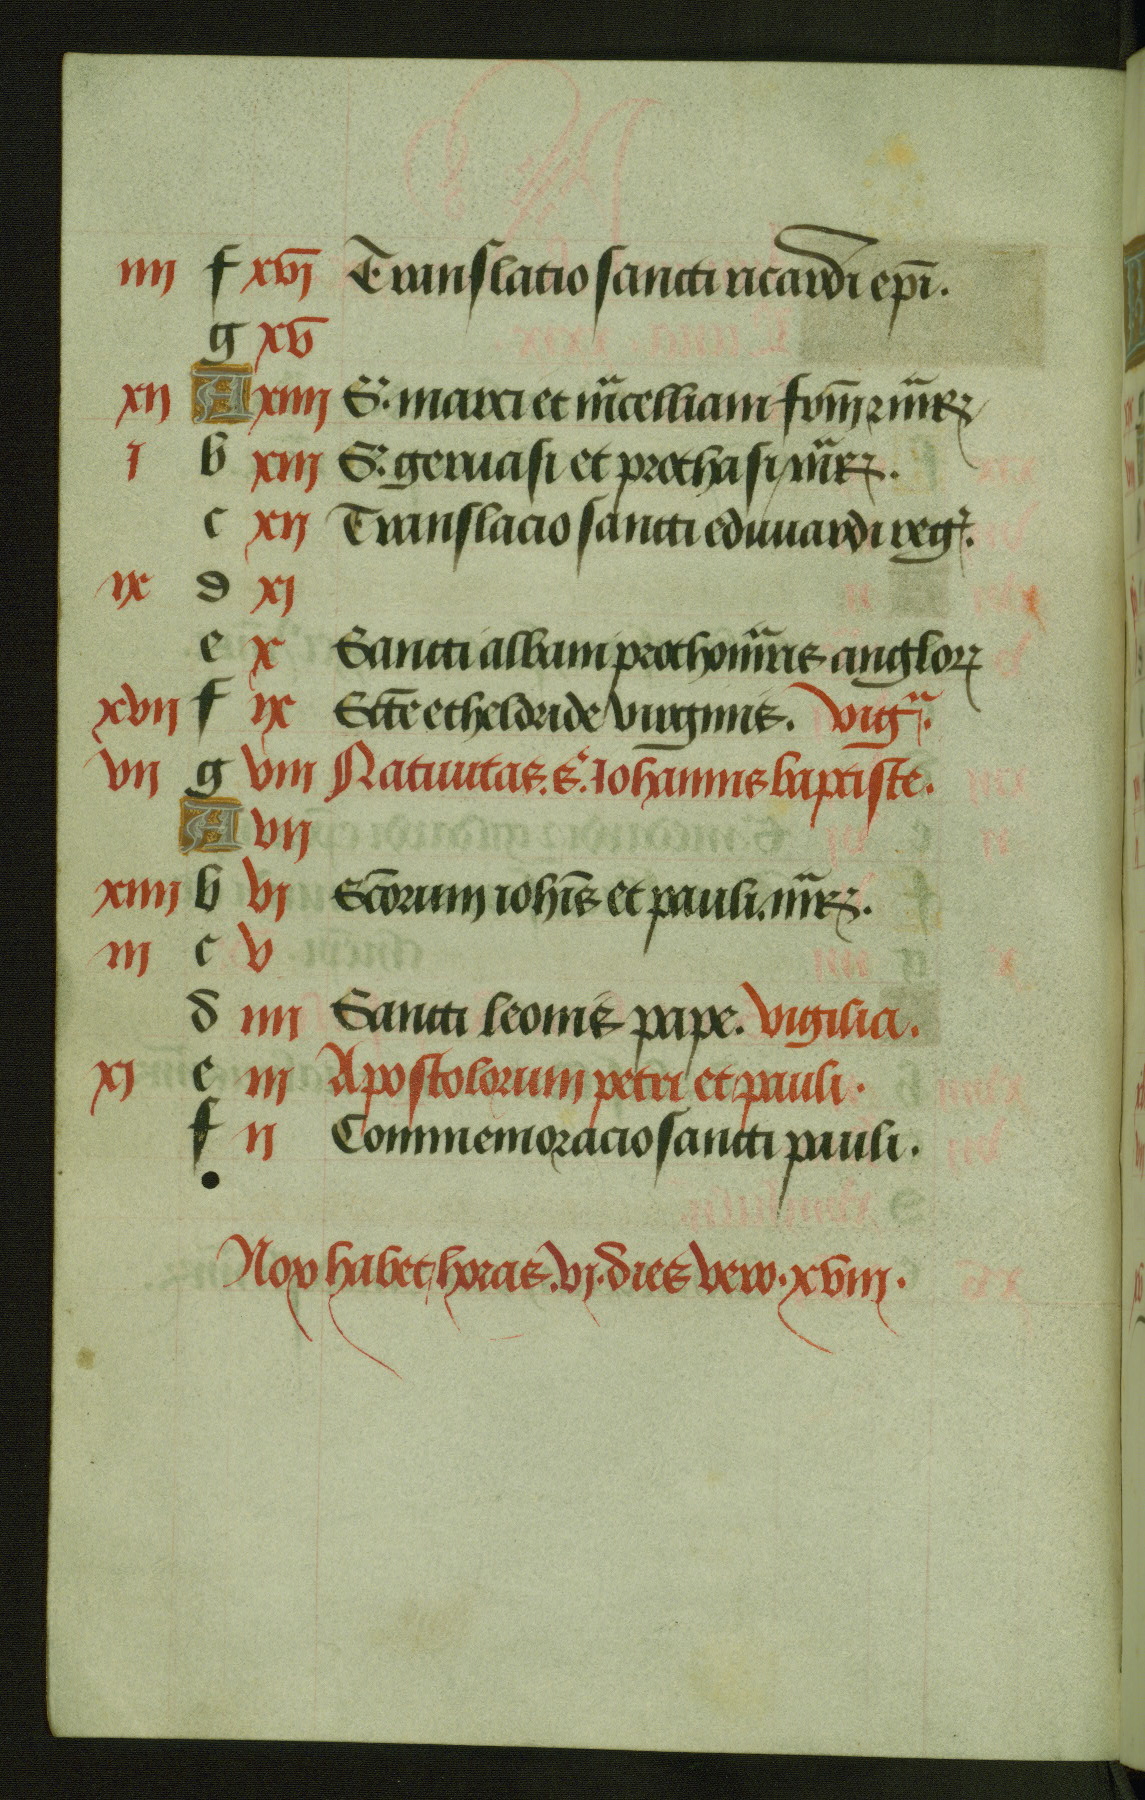 iiii f xvi Translatio sancti ricardi epi.
g xv
xii A xiiii S. marci et mcelliani frum 2 mrꝝ
i b xiii S. geruasi et prothasi mrꝝ.
c xii Translacio sancti eduuardi reg.
ix d xi
e x Sancti albani prothomris anglorꝝ
xvii f ix Scte etheldride virginis. vigª.
vii g viii Natiuitas. s. Iohannis baptiste.
A vii
xiiii b vi Scorum iohis et pauli. mrꝝ.
iii c v
d iiii Sancti leonis pape. vigilia.
xi e iii Apostolorum petri et pauli.
f ii Commemoracio sancti pauli.
Nox habet horas. vi. dies vero. xviii.